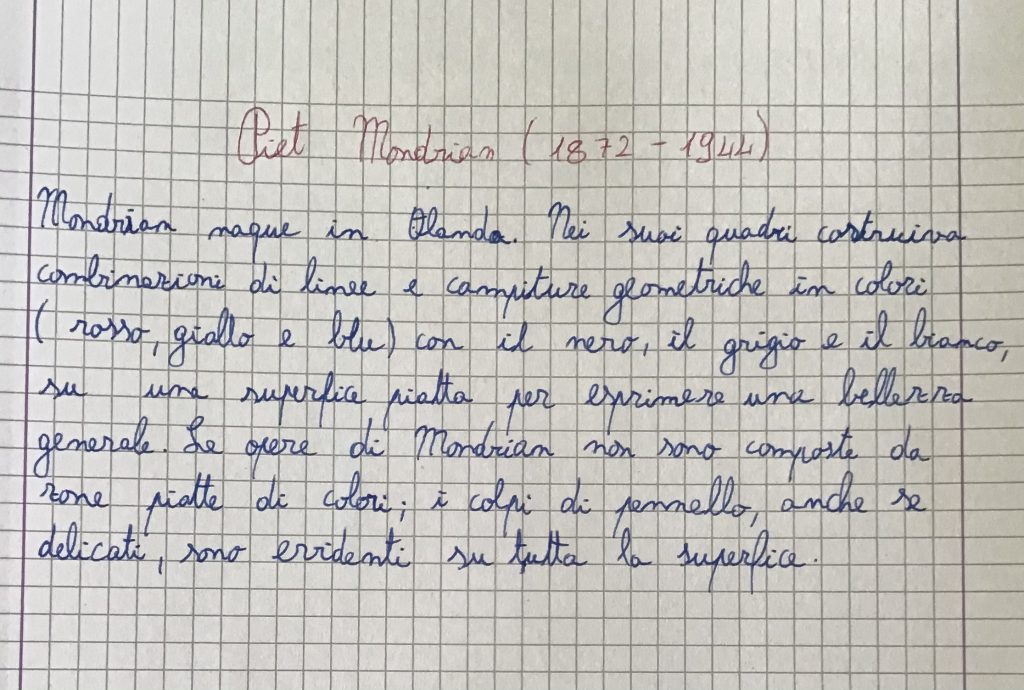 Piet Mondrian (1872 - 1944)
Mondrian naque in Olanda. Nei suoi quadri costruiva
combinazioni di linee e campiture geometriche in colori
(rosso, giallo e blu) con il nero, il grigio e il bianco,
su una superfice piatta per esprimere una bellezza
generale. Le opere di Mondrian non sono composte da
zone piatte di colori; i colpi di pennello, anche se
delicati, sono evidenti su tutta la superfice.